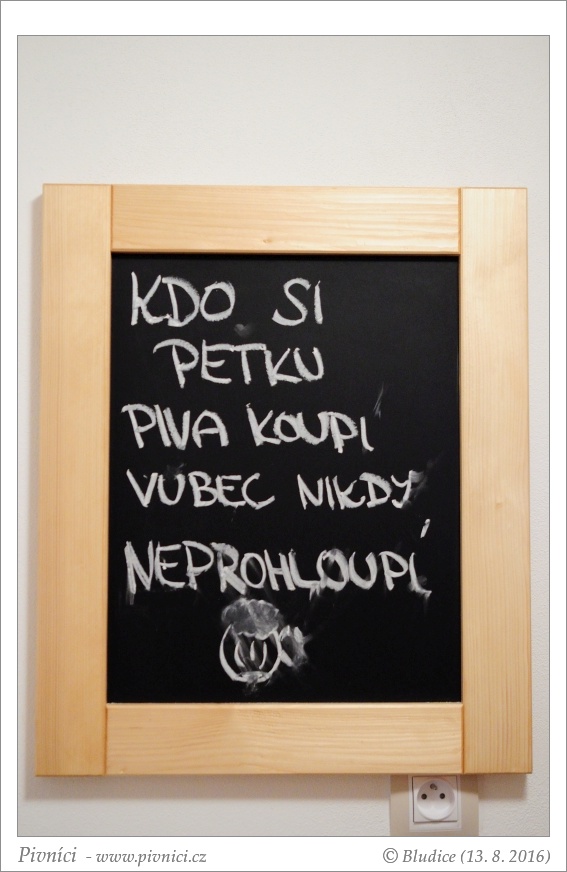 KDO SI
PETKU
PIVA KOUPI
VUBEC NIKDY
NEPROHLOUPÍ
Pivníci - www.pivnici.cz
© Bludice (13. 8. 2016)